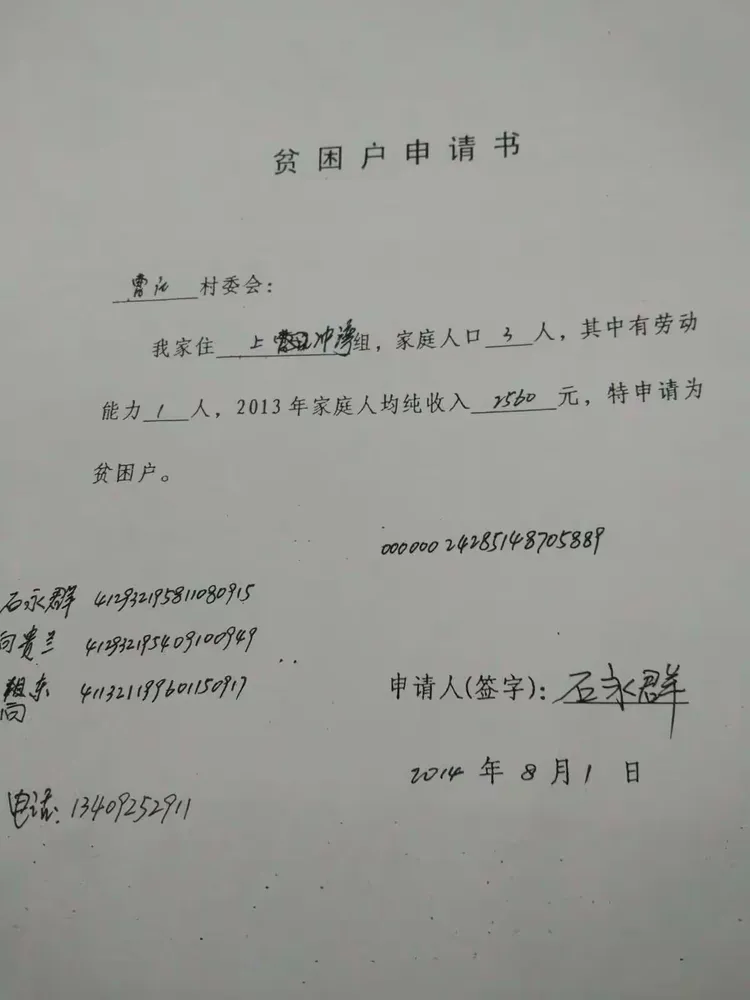 贫困户申请书
曹 村委会：
我家住 上 冲湾组，家庭人口 3 人，其中有劳动
能力 1 人，2013 年家庭人均纯收入 2560 元，特申请为
贫困户。
00000024285148705889
石永群 412932195811080915
向贵兰 412932195409100949
向 411321199601150917
申请人(签字)：石永群
2014 年 8 月 1 日
电话：13409252911